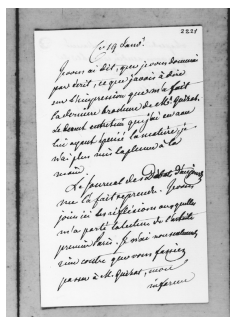 2221
Ce 19 Janv.
Je vous ai dit, que je vous donnerai
par écrit, ce que j'avois à dire
sur l'impression que m'a fait
la dernière brochure de Mr. Guizot.
Le dernier entretien que j'ai eu avec
lui ayant épuisé la matière, je
n'ai plus mis la plume à la
main.
Le Journal des Débats d'aujourd'hui
me la fait reprendre. Je vous
joins ici les réflexions auxquelles
m'a porté la lecture de l'article
premier Paris. Je n'ai nonseulement
rien contre que vous fassiez
passer à M. Guizot, mon